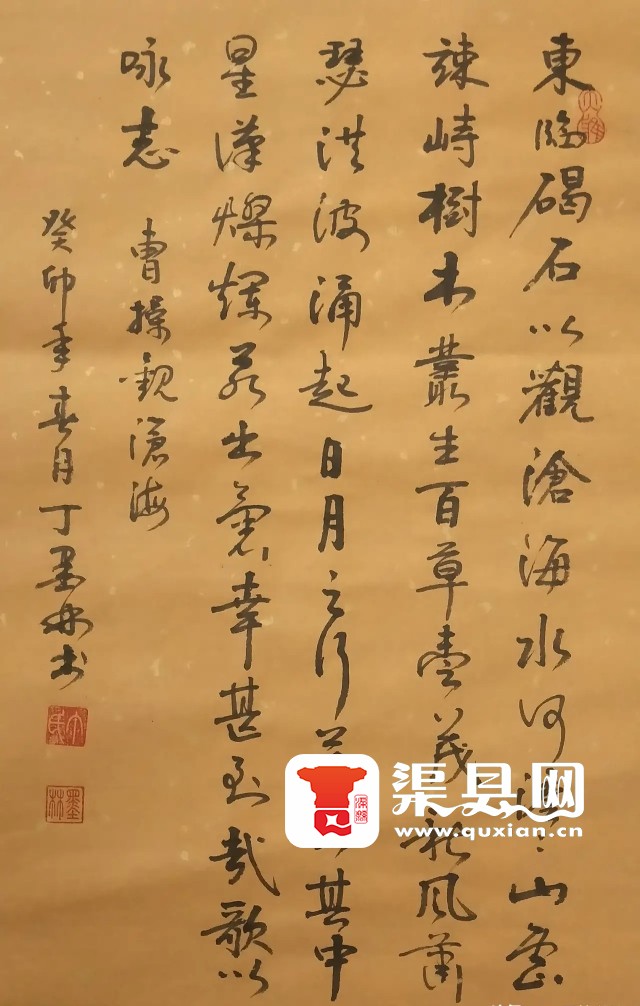 東臨碣石以觀滄海水何澹〻山島
竦峙樹木叢生百草豐茂秋風蕭
瑟洪波涌起日月之行若其中
星漢燦爛若出裏幸甚至哉歌以
咏志 曹操觀滄海
癸卯年春月丁墨林书
墨林
渠县网
www.quxian.cn